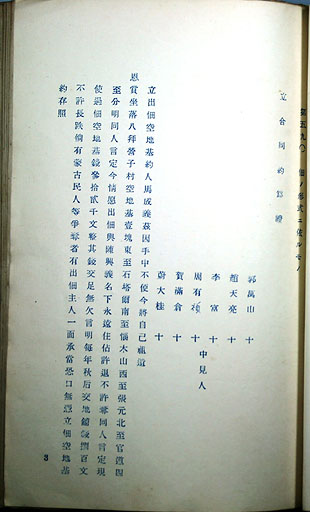 佃ノ券式ニ依ルモノ
立合同約爲證
郭萬山 十
趙天亮 十
李富 十
中見人
周有 十
賀滿倉 十
蔚大桂 十
立出佃空地基約人馬成義茲因手中不便今將自己祖遺
恩賞坐落八拜營子村空地基壹塊東至石塔爾南至惱木山西至張元北至官道四
至分明同人言定今情愿出佃與興義名下永遠住佔許退不許奪同人言定現
使過佃空地基錢參拾貳千文整其錢交足無欠言明每年秋后交地鋪錢四百文
不許長跌倘有蒙古民人等爭奪者有出佃主人一面承當恐口無憑立佃空地基
約存照
3